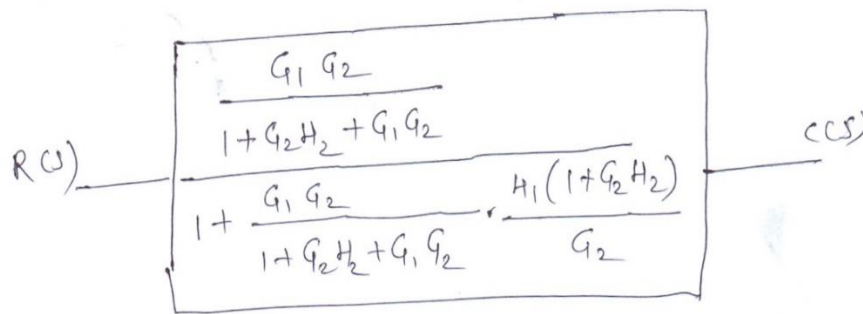 G₁ G₂
1 + G₂H₂ + G₁G₂
R(s) C(s)
1 + G₁ G₂ / 1 + G₂H₂ + G₁G₂ · H₁(1 + G₂H₂) / G₂